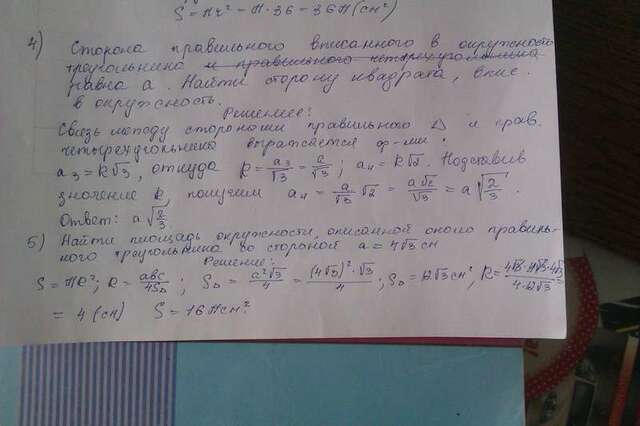 S = πr² = π·36 = 36π (см²)
4) Сторона правильного вписанного в окружность
треугольника и правильного четырехугольника
равна a. Найти сторону квадрата, впис.
в окружность.
Решение:
Связь между сторонами правильного Δ и прав.
четырехугольника выражается ф-ми:
a₃ = R√3, откуда R = a₃/√3 = a/√3; a₄ = R√2. Подставив
значение R, получим a₄ = a/√3 √2 = a√2/√3 = a√(2/3).
Ответ: a√(2/3).
5) Найти площадь окружности, описанной около правиль-
ного треугольника со стороной a = 4√3 см
Решение:
S = πR²; R = abc/4SΔ; SΔ = a²√3/4 = (4√3)²·√3/4; SΔ = 12√3 см², R = 4√3·4√3·4√3/4·12√3
= 4 (см) S = 16π см²